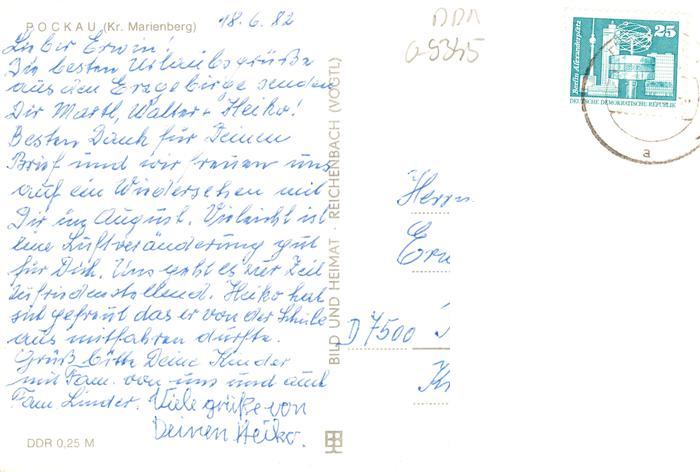 POCKAU (Kr. Marienberg)
18.6.82
Lieber Erwin!
Die besten Urlaubsgrüße
aus dem Erzgebirge senden
Dir Martl, Walter + Heiko!
Besten Dank für Deinen
Brief und wir freuen uns
auf ein Wiedersehen mit
Dir im August. Vieleicht ist
eine Luftveränderung gut
für Dich. Uns geht es zur Zeit
zufriedenstellend. Heiko hat
sich gefreut das er von der Schule
aus mitfahren durfte.
Grüß bitte Deine Kinder
mit Fam. von uns und auch
Fam Linder. Viele grüße von
Deinen Heiko.
DDR 0,25 M
BILD UND HEIMAT · REICHENBACH (VOGTL)
DDR
a 5345
25
Berlin Alexanderplatz
DEUTSCHE DEMOKRATISCHE REPUBLIK
a
Herrn
Erw
D 7500